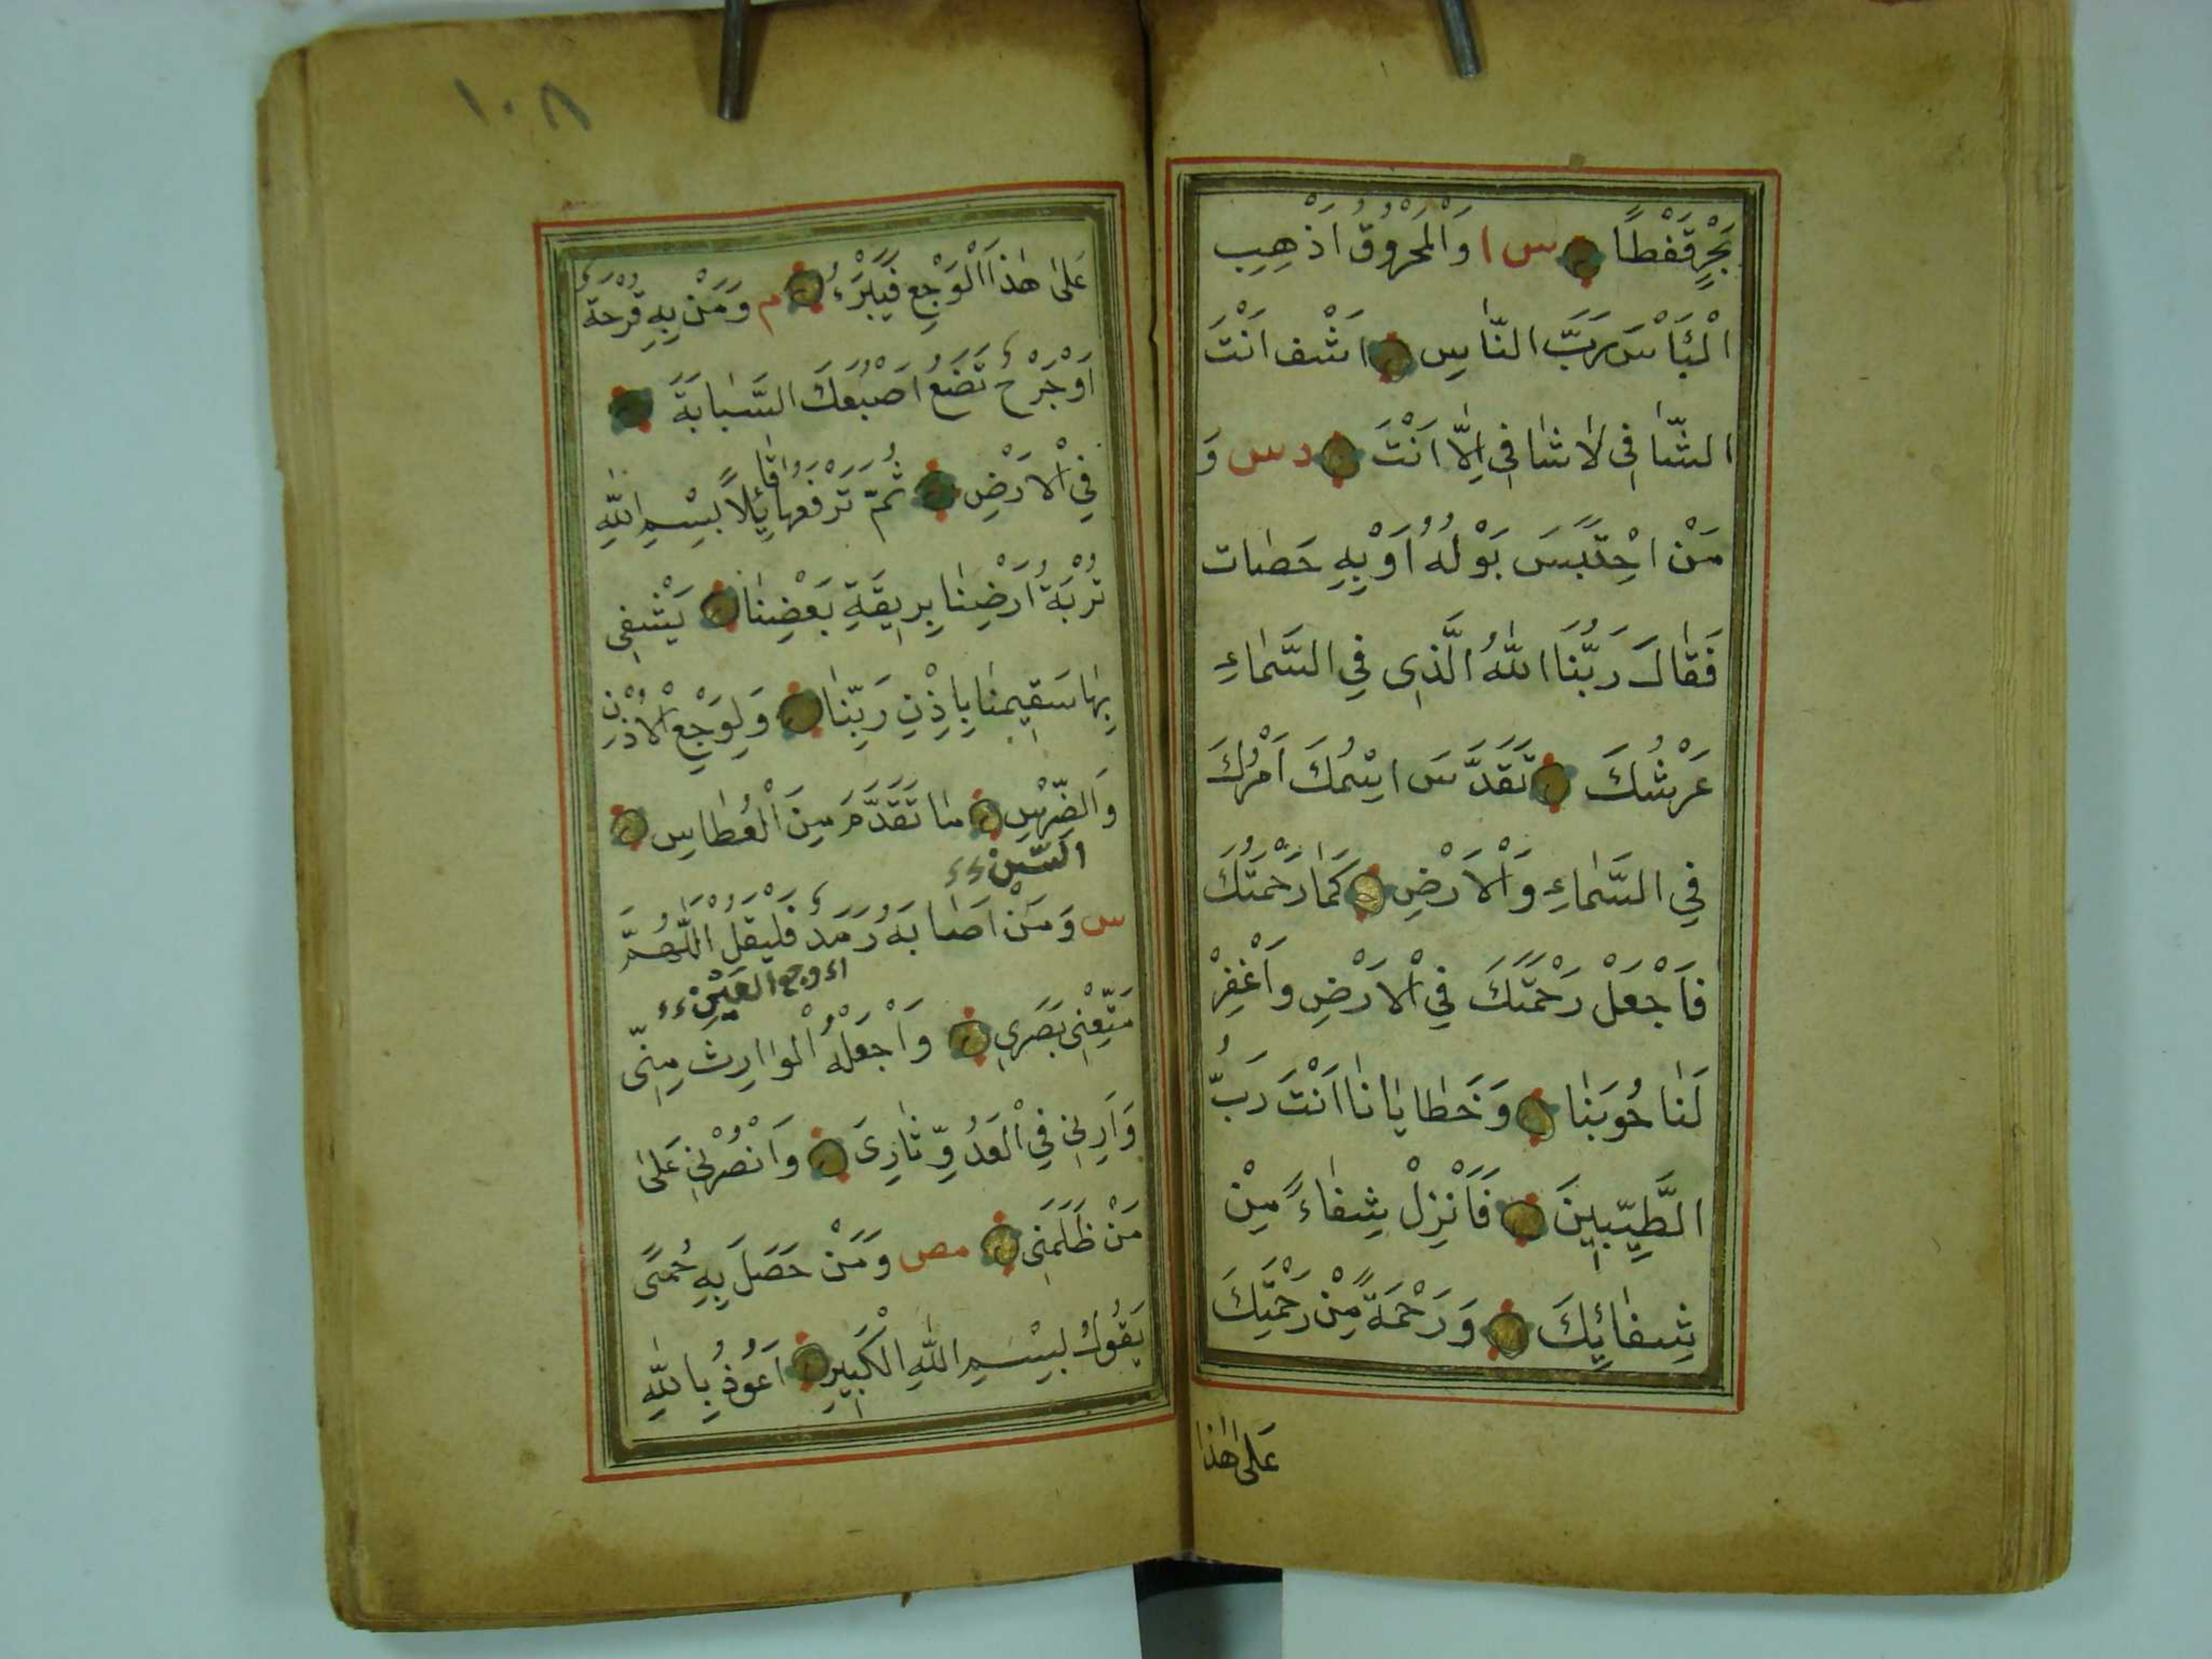 بَحْرٍ قَفْطًا س ا وَالْمَحْرُوقُ اَذْهِبِ
الْبَأْسَ رَبَّ النَّاسِ اشْفِ اَنْتَ
الشَّافِي لَا شَافِي اِلَّا اَنْتَ دس وَ
مَنْ احْتَبَسَ بَوْلُهُ اَوْ بِهِ حَصَات
فَقَالَ رَبُّنَا اللهُ الَّذِي فِي السَّمَاءِ
عَرْشُكَ تَقَدَّسَ اسْمُكَ اَمْرُكَ
فِي السَّمَاءِ وَالْاَرْضِ كَمَا رَحْمَتُكَ
فَاَجْعَلْ رَحْمَتَكَ فِي الْاَرْضِ وَاَغْفِرْ
لَنَا حُوبَنَا وَخَطَايَانَا اَنْتَ رَبُّ
الطَّيِّبِينَ فَاَنْزِلْ شِفَاءً مِنْ
شِفَائِكَ وَرَحْمَةً مِنْ رَحْمَتِكَ
عَلَى هٰذَا
١٠٨
عَلَى هٰذَا الْوَجِعِ فَيَبْرَءُ م وَمَنْ بِهِ قُرْحَةٌ
اَوْ جَرْحٌ تَضَعُ اَصْبُعَكَ السَّبَابَةَ
فِي الْاَرْضِ ثُمَّ تَرْفَعُهَا قَائِلاً بِسْمِ اللهِ
تُرْبَةُ اَرْضِنَا بِرِيقَةِ بَعْضِنَا يَشْفِي
بِهَا سَقِيمَنَا بِاِذْنِ رَبِّنَا وَلِوَجِعِ الْاُذْنِ
وَالضِّرْسِ مَا تَقَدَّمَ مِنَ الْعُطَاسِ
السِّنّ
س وَمَنْ اَصَابَهُ رَمَدٌ فَلْيَقُلْ اَللّٰهُمَّ
اى وجع العَيْن
مَتِّعْنِي بَصَرِي وَاَجْعَلْهُ الْوَارِثَ مِنِّي
وَاَرِنِي فِي الْعَدُوِّ ثَارِيَ وَاَنْصُرْنِي عَلَى
مَنْ ظَلَمَنِي مص وَمَنْ حَصَلَ بِهِ حُمَّى
يَقُولُ بِسْمِ اللهِ الْكَبِيرِ اَعُوذُ بِاللهِ